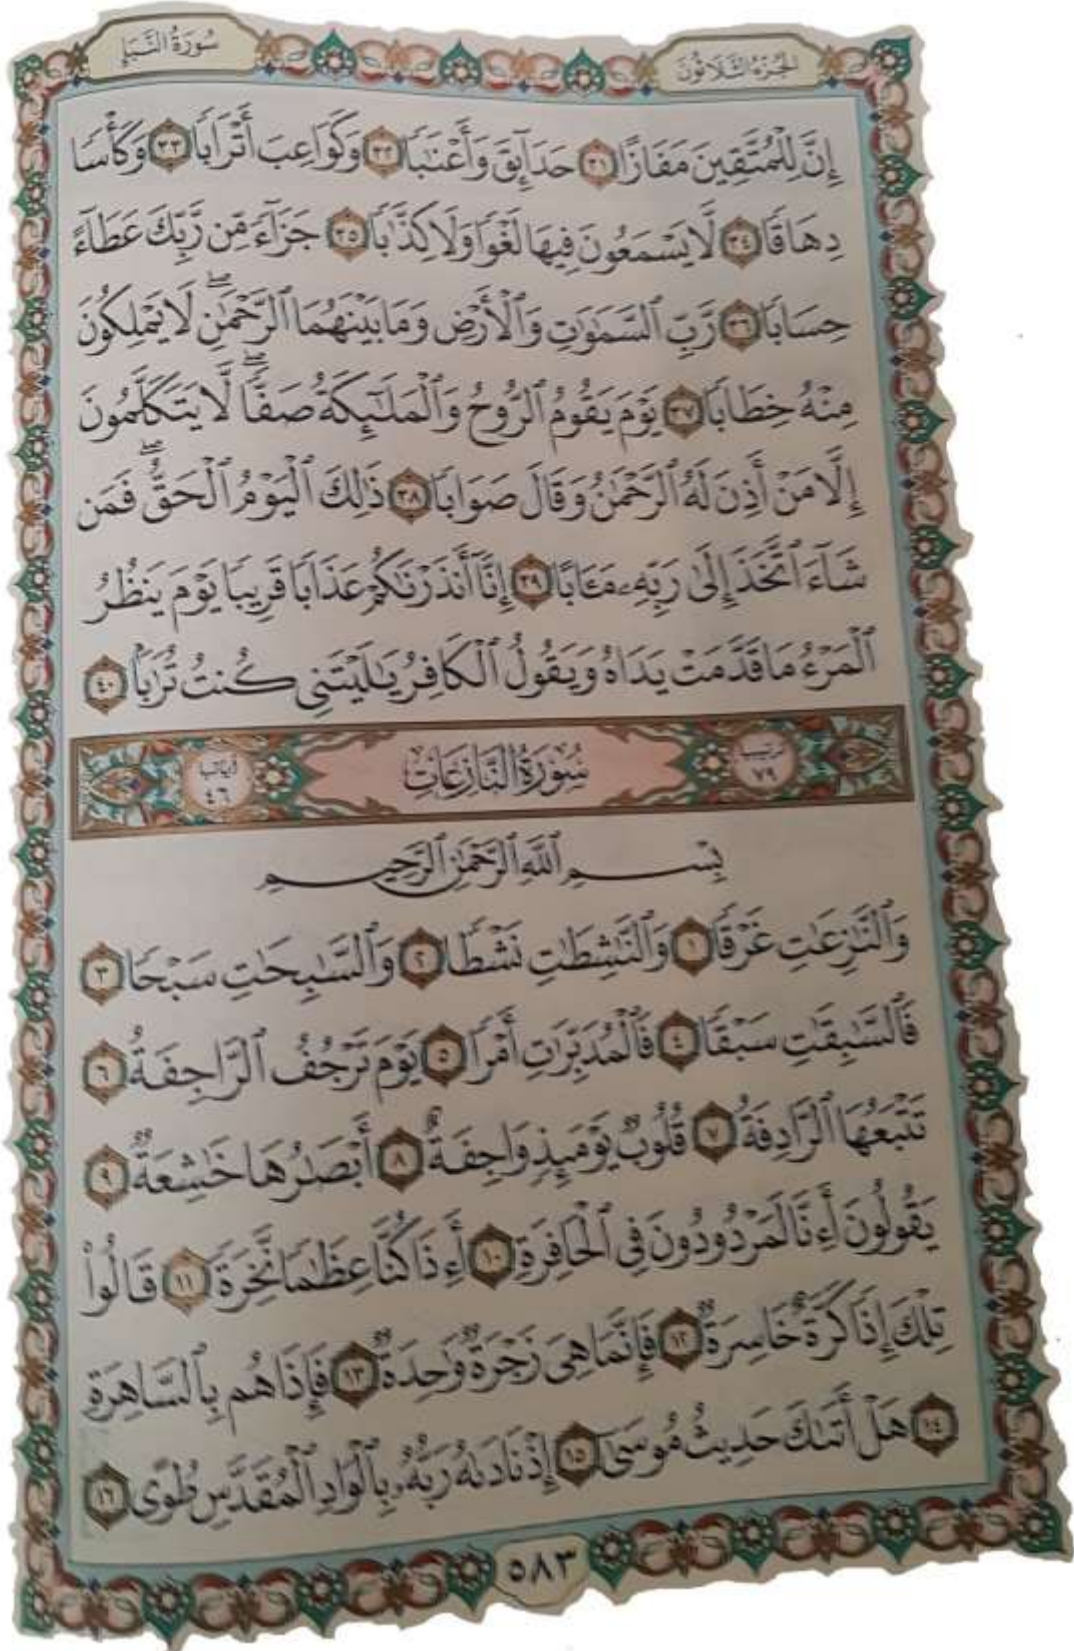 سُورَةُ النَّبَإِ
الجُزْءُ الثَّلَاثُونَ
إِنَّ لِلْمُتَّقِينَ مَفَازًا ٣١ حَدَآئِقَ وَأَعْنَٰبًا ٣٢ وَكَوَاعِبَ أَتْرَابًا ٣٣ وَكَأْسًا
دِهَاقًا ٣٤ لَّا يَسْمَعُونَ فِيهَا لَغْوًا وَلَا كِذَّٰبًا ٣٥ جَزَآءً مِّن رَّبِّكَ عَطَآءً
حِسَابًا ٣٦ رَّبِّ ٱلسَّمَٰوَٰتِ وَٱلْأَرْضِ وَمَا بَيْنَهُمَا ٱلرَّحْمَٰنِۖ لَا يَمْلِكُونَ
مِنْهُ خِطَابًا ٣٧ يَوْمَ يَقُومُ ٱلرُّوحُ وَٱلْمَلَٰٓئِكَةُ صَفًّاۖ لَّا يَتَكَلَّمُونَ
إِلَّا مَنْ أَذِنَ لَهُ ٱلرَّحْمَٰنُ وَقَالَ صَوَابًا ٣٨ ذَٰلِكَ ٱلْيَوْمُ ٱلْحَقُّۖ فَمَن
شَآءَ ٱتَّخَذَ إِلَىٰ رَبِّهِۦ مَـَٔابًا ٣٩ إِنَّآ أَنذَرْنَٰكُمْ عَذَابًا قَرِيبًا يَوْمَ يَنظُرُ
ٱلْمَرْءُ مَا قَدَّمَتْ يَدَاهُ وَيَقُولُ ٱلْكَافِرُ يَٰلَيْتَنِى كُنتُ تُرَٰبًۢا ٤٠
ترتيبها ٧٩
سُورَةُ النَّازِعَاتِ
آياتها ٤٦
بِسْمِ ٱللَّهِ ٱلرَّحْمَٰنِ ٱلرَّحِيمِ
وَٱلنَّٰزِعَٰتِ غَرْقًا ١ وَٱلنَّٰشِطَٰتِ نَشْطًا ٢ وَٱلسَّٰبِحَٰتِ سَبْحًا ٣
فَٱلسَّٰبِقَٰتِ سَبْقًا ٤ فَٱلْمُدَبِّرَٰتِ أَمْرًا ٥ يَوْمَ تَرْجُفُ ٱلرَّاجِفَةُ ٦
تَتْبَعُهَا ٱلرَّادِفَةُ ٧ قُلُوبٌ يَوْمَئِذٍ وَاجِفَةٌ ٨ أَبْصَٰرُهَا خَٰشِعَةٌ ٩
يَقُولُونَ أَءِنَّا لَمَرْدُودُونَ فِى ٱلْحَافِرَةِ ١٠ أَءِذَا كُنَّا عِظَٰمًا نَّخِرَةً ١١ قَالُوا۟
تِلْكَ إِذًا كَرَّةٌ خَاسِرَةٌ ١٢ فَإِنَّمَا هِىَ زَجْرَةٌ وَٰحِدَةٌ ١٣ فَإِذَا هُم بِٱلسَّاهِرَةِ
١٤ هَلْ أَتَىٰكَ حَدِيثُ مُوسَىٰٓ ١٥ إِذْ نَادَىٰهُ رَبُّهُۥ بِٱلْوَادِ ٱلْمُقَدَّسِ طُوًى ١٦
٥٨٣